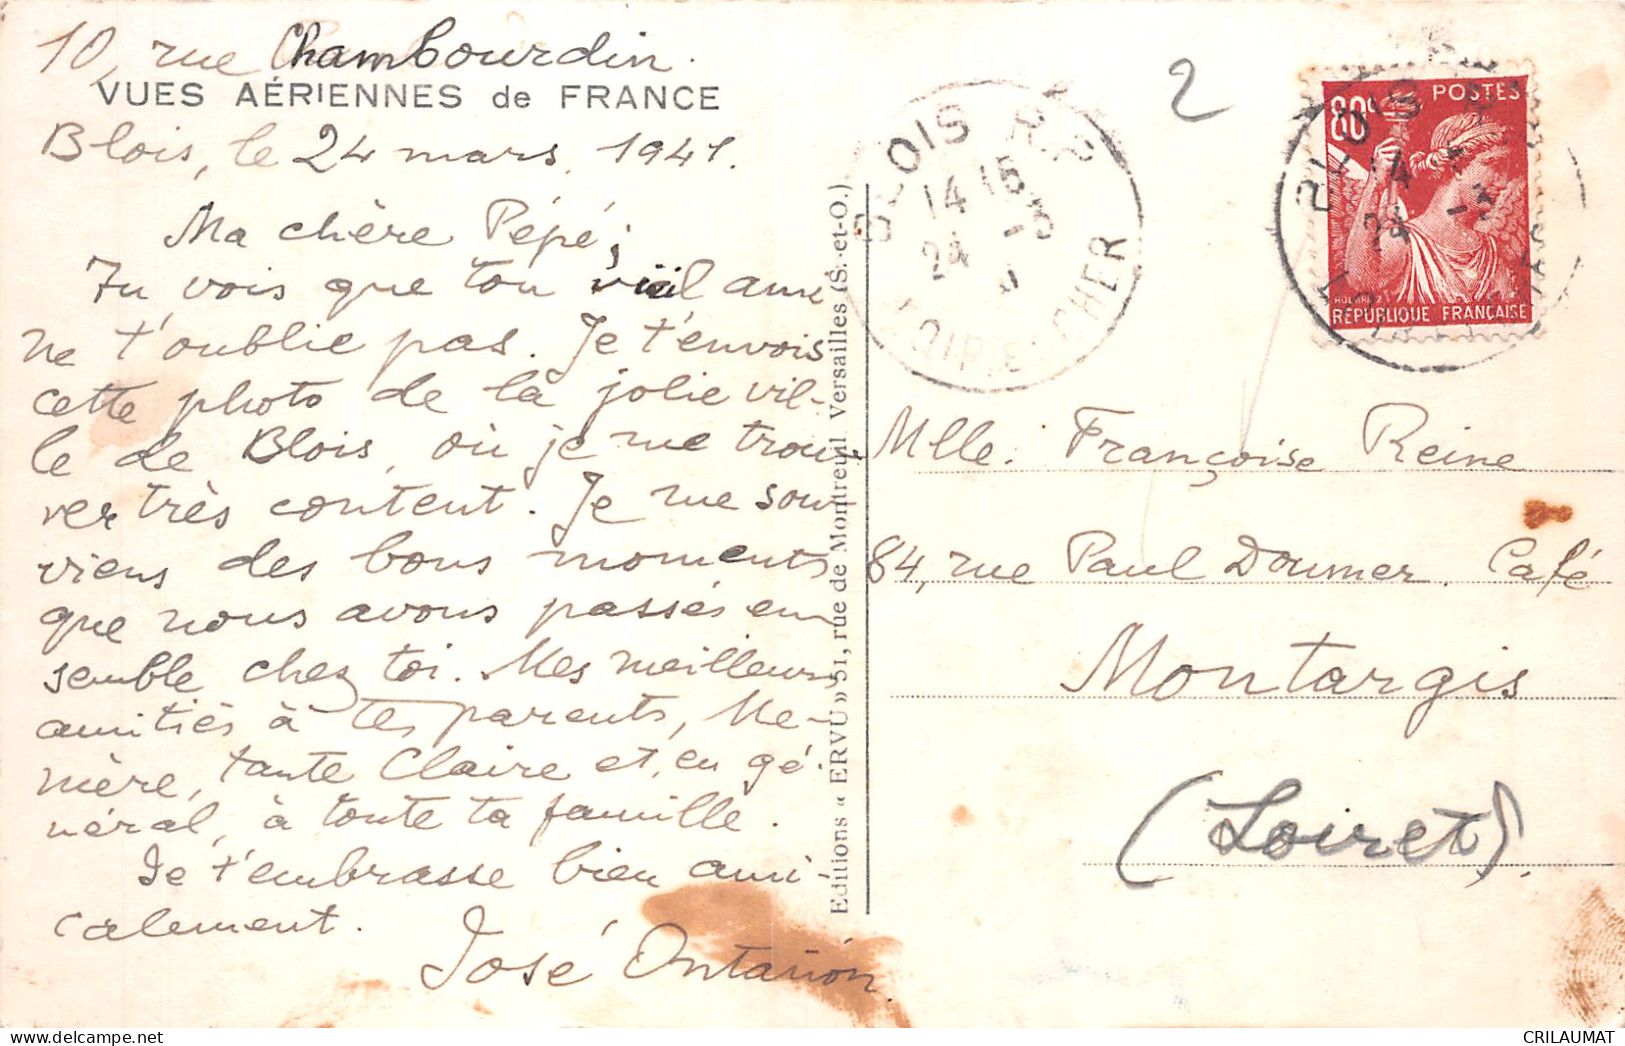 10, rue Chambourdin.
VUES AÉRIENNES de FRANCE
Blois, le 24 mars 1941.
Ma chère Pépé;
Tu vois que ton vieil ami
ne t'oublie pas. Je t'envois
cette photo de la jolie vil-
le de Blois, où je me trou-
ver très content. Je me sou-
viens des bons moments
que nous avons passés en
semble chez toi. Mes meilleurs
amitiés à tes parents, Me-
mère, tante Claire et, en gé-
néral, à toute ta famille.
Je t'embrasse bien ami-
calement.
José Ontañón.
Editions « ERVU » 51, rue de Montreuil Versailles (S.-et-O.)
BLOIS R.P.
14 15
24 -3
LOIR-ET-CHER
2
80c POSTES
RÉPUBLIQUE FRANÇAISE
BLOIS
14
24 -3
Mlle. Françoise Reine
84, rue Paul Doumer. Café
Montargis
(Loiret).
CRILAUMAT